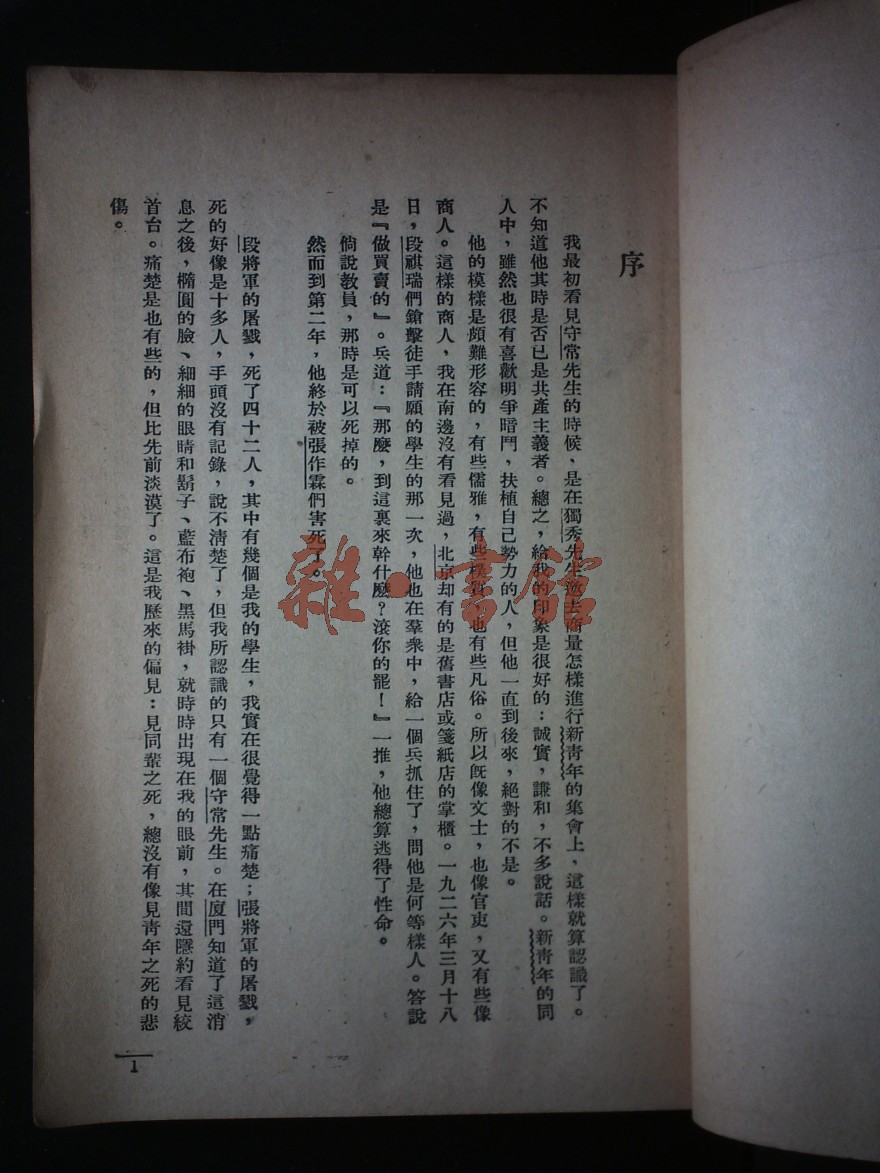 序
我最初看見守常先生的時候、是在獨秀先生邀去商量怎樣進行新靑年的集會上，這樣就算認識了。
不知道他其時是否已是共產主義者。總之，給我的印象是很好的：誠實，謙和，不多說話。新靑年的同
人中，雖然也很有喜歡明爭暗鬥，扶植自己勢力的人，但他一直到後來，絕對的不是。
他的模樣是頗難形容的，有些儒雅，有些樸質，也有些凡俗。所以旣像文士，也像官吏，又有些像
商人。這樣的商人，我在南邊沒有看見過，北京却有的是舊書店或箋紙店的掌櫃。一九二六年三月十八
日，段祺瑞們鎗擊徒手請願的學生的那一次，他也在羣衆中，給一個兵抓住了，問他是何等樣人。答說
是『做買賣的』。兵道：『那麼，到這裏來幹什麼？滾你的罷！』一推，他總算逃得了性命。
倘說敎員，那時是可以死掉的。
然而到第二年，他終於被張作霖們害死了。
段將軍的屠戮，死了四十二人，其中有幾個是我的學生，我實在很覺得一點痛楚；張將軍的屠戮，
死的好像是十多人，手頭沒有記錄，說不淸楚了，但我所認識的只有一個守常先生。在厦門知道了這消
息之後，橢圓的臉、細細的眼睛和鬍子、藍布袍、黑馬褂，就時時出現在我的眼前，其間還隱約看見絞
首台。痛楚是也有些的，但比先前淡漠了。這是我歷來的偏見：見同輩之死，總沒有像見靑年之死的悲
傷。
1
雜·書館